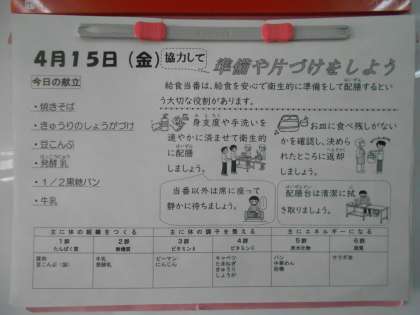 4月15日（金）
協力して
準備や片づけをしよう
今日の献立
・焼きそば
・きゅうりのしょうがづけ
・豆こんぶ
・発酵乳
・1／2黒糖パン
・牛乳
給食当番は、給食を安心で衛生的に準備をして配膳するとい
う大切な役割があります。
身支度や手洗いを
速やかに済ませて衛生的
に配膳
しましょう。
お皿に食べ残しがない
かを確認し、決めら
れたところに返却
しましょう。
当番以外は席に座って
静かに待ちましょう。
配膳台は清潔に拭
き取りましょう。
主に体の組織をつくる
主に体の調子を整える
主にエネルギーになる
1群 2群 3群 4群 5群 6群
たんぱく質 無機質 ビタミンA ビタミンC 炭水化物 脂質
豚肉 牛乳 ピーマン キャベツ パン サラダ油
発酵乳 にんじん たまねぎ 中華めん
きゅうり 砂糖
しょうが